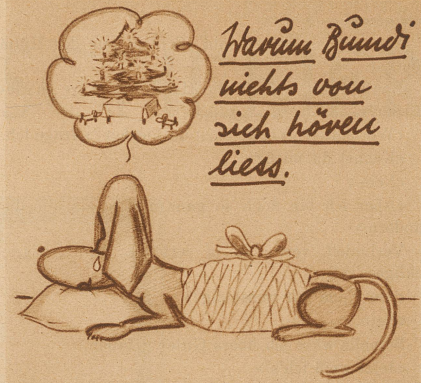 Warum Bumdi
nichts von
sich hören
liess.